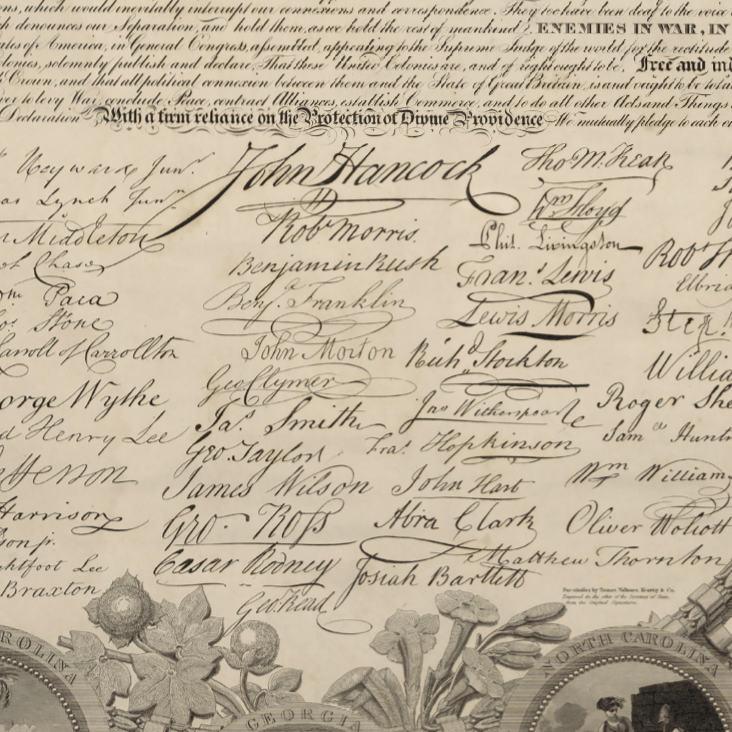 ns, which would inevitably interrupt our connexions and correspondence. They too have been deaf to the voice
ch denounces our Separation, and hold them, as we hold the rest of mankind, ENEMIES IN WAR, IN
ates of America, in General Congress, assembled, appealing to the Supreme Judge of the world for the rectitude
olonies, solemnly publish and declare, That these United Colonies are, and of right ought to be, Free and ind
Crown, and that all political connexion between them and the State of Great Britain, is and ought to be total
er to levy War, conclude Peace, contract Alliances, establish Commerce, and to do all other Acts and Things
Declaration With a firm reliance on the Protection of Divine Providence We mutually pledge to each
Heyward Junr.
as Lynch Junr.
Middleton
Chase
Paca
Stone
Carroll of Carrollton
orge Wythe
d Henry Lee
efferson
Harrison
son jr.
ghtfoot Lee
Braxton
John Hancock
Robt Morris.
Benjamin Rush
Benj. Franklin
John Morton
Geo Clymer
Jas. Smith
Geo. Taylor
James Wilson
Geo. Ross
Caesar Rodney
Geo Read
Tho M. Kean
Wm Floyd
Phil. Livingston
Frans. Lewis
Lewis Morris
Richd Stockton
Jno Witherspoon
Fras. Hopkinson
John Hart
Abra Clark
Josiah Bartlett
Robt
Elbri
Step.
Willia
Roger She
Samel Hunt
Wm Williams
Oliver Wolcott
Matthew Thornton
CAROLINA
GEORGIA
NORTH CAROLINA